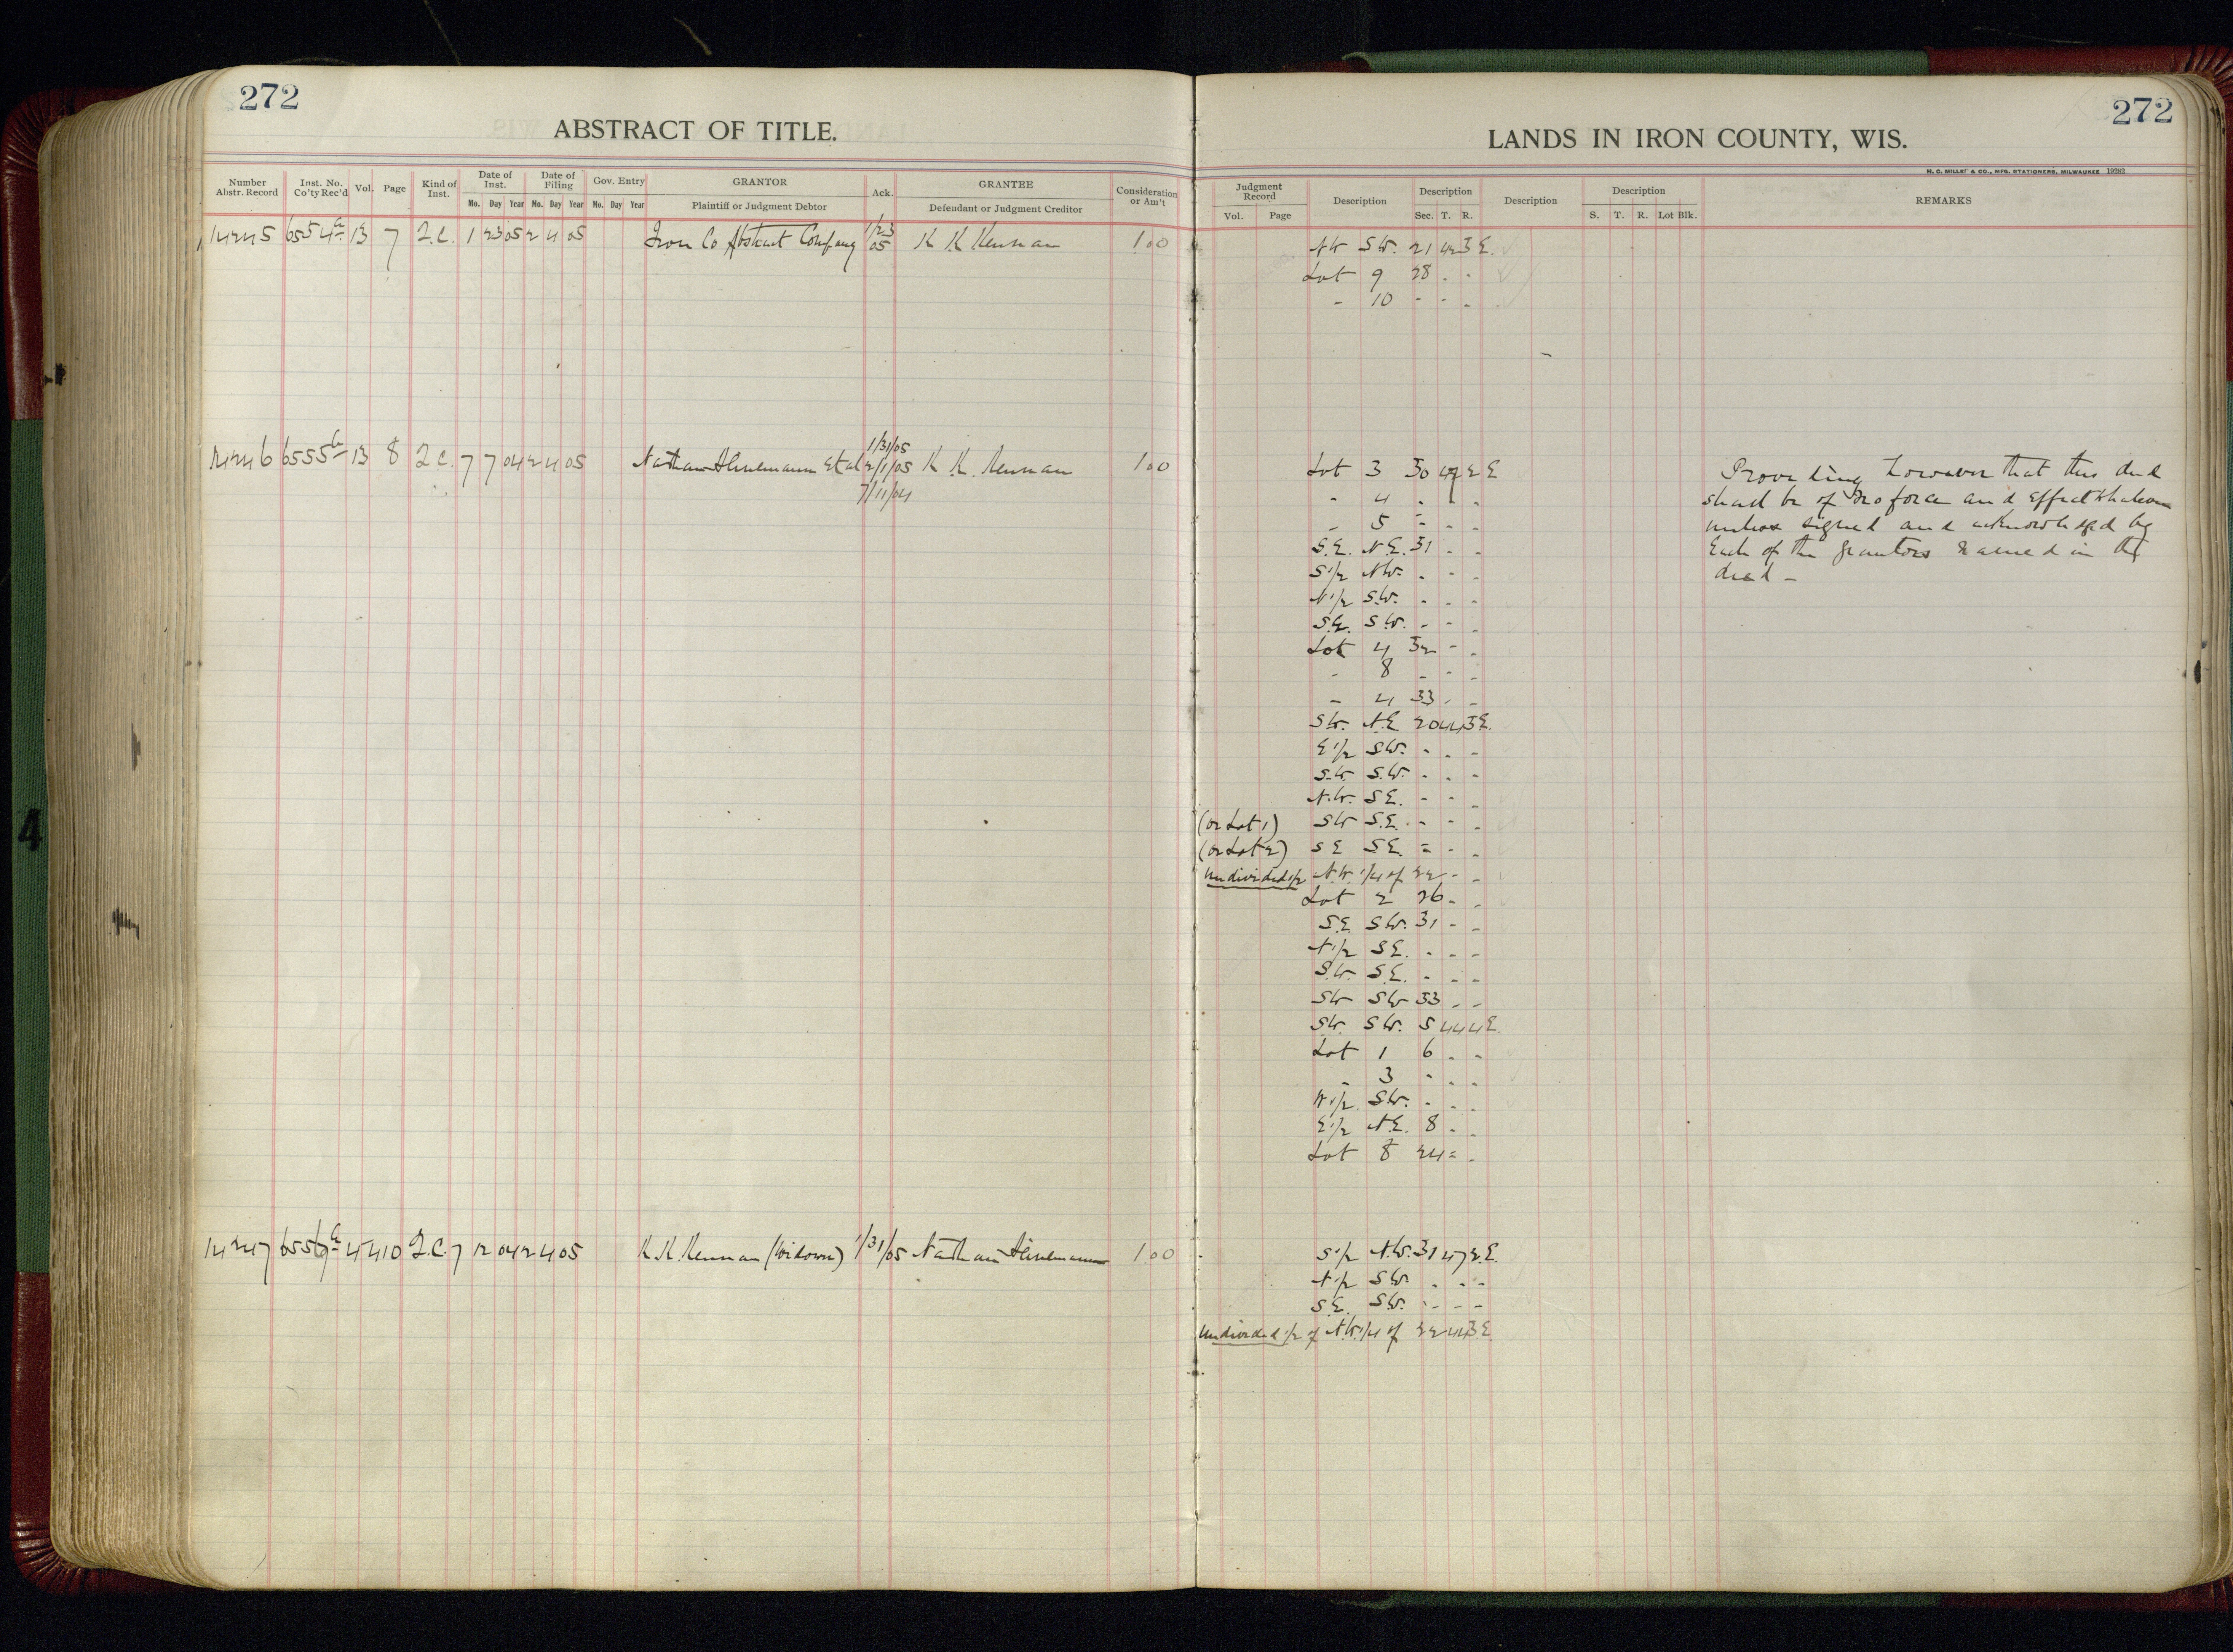 272
ABSTRACT OF TITLE.
Number Abstr. Record Inst. No. Co'ty Rec'd Vol. Page Kind of Inst. Date of Inst. Date of Filing Gov. Entry GRANTOR Ack. GRANTEE Consideration or Am't
Mo. Day Year Mo. Day Year Mo. Day Year Plaintiff or Judgment Debtor Defendant or Judgment Creditor
14245 6554 13 7 Q.C. 1 23 05 2 4 05 Iron Co Abstract Company 1/23 05 K K Kennan 1.00
1/31/05
14246 6555 13 8 Q.C. 7 7 04 2 4 05 Nathan Heinemann et al 2/1/05 K. K. Kennan 1.00
7/11/04
14247 4 410 Q.C. 7 12 04 2 4 05 K.K. Kennan (Widower) 1/31/05 Nathan Heinemann 1.00
272
LANDS IN IRON COUNTY, WIS.
H. C. MILLER CO., MFG. STATIONERS, MILWAUKEE 19282
Judgment Record Description Description Description Description REMARKS
Vol. Page Sec. T. R. S. T. R. Lot Blk.
NW SW. 21 42 3 E.
Lot 9 28 - -
- 10 - - -
Lot 3 30 47 2 E
- 4 - - -
- 5 - - -
S.E. N.E. 31 - -
S 1/2 NW. - - -
N 1/2 S.W. - - -
S.E. S.W. - - -
Lot 4 32 - -
- 8 - - -
- 4 33 - -
SW. N.E. 20 44 3 E.
E 1/2 SW. - - -
S.W. S.W. - - -
N.W. S.E. - - -
(or Lot 1) SW S.E. - - -
(or Lot 2) S E S.E. - - -
Undivided 1/2 N.W. 1/4 of 22 - -
Lot 2 26 - -
S.E. SW. 31 - -
N 1/2 S.E. - - -
S.W. S.E. - - -
SW SW 33 - -
SW. SW. 5 44 4 E.
Lot 1 6 - -
- 3 - - -
W 1/2 SW. - - -
E 1/2 N.E. 8 - -
Lot 8 24 - -
Providing however that this deed
shall be of no force and effect whatever
unless signed and acknowledged by
Each of the grantors named in the
deed -
S 1/2 N.W. 31 47 2 E.
N 1/2 SW. - - -
S.E. SW. - - -
Undivided 1/2 of N.W. 1/4 of 22 44 3 E.
4